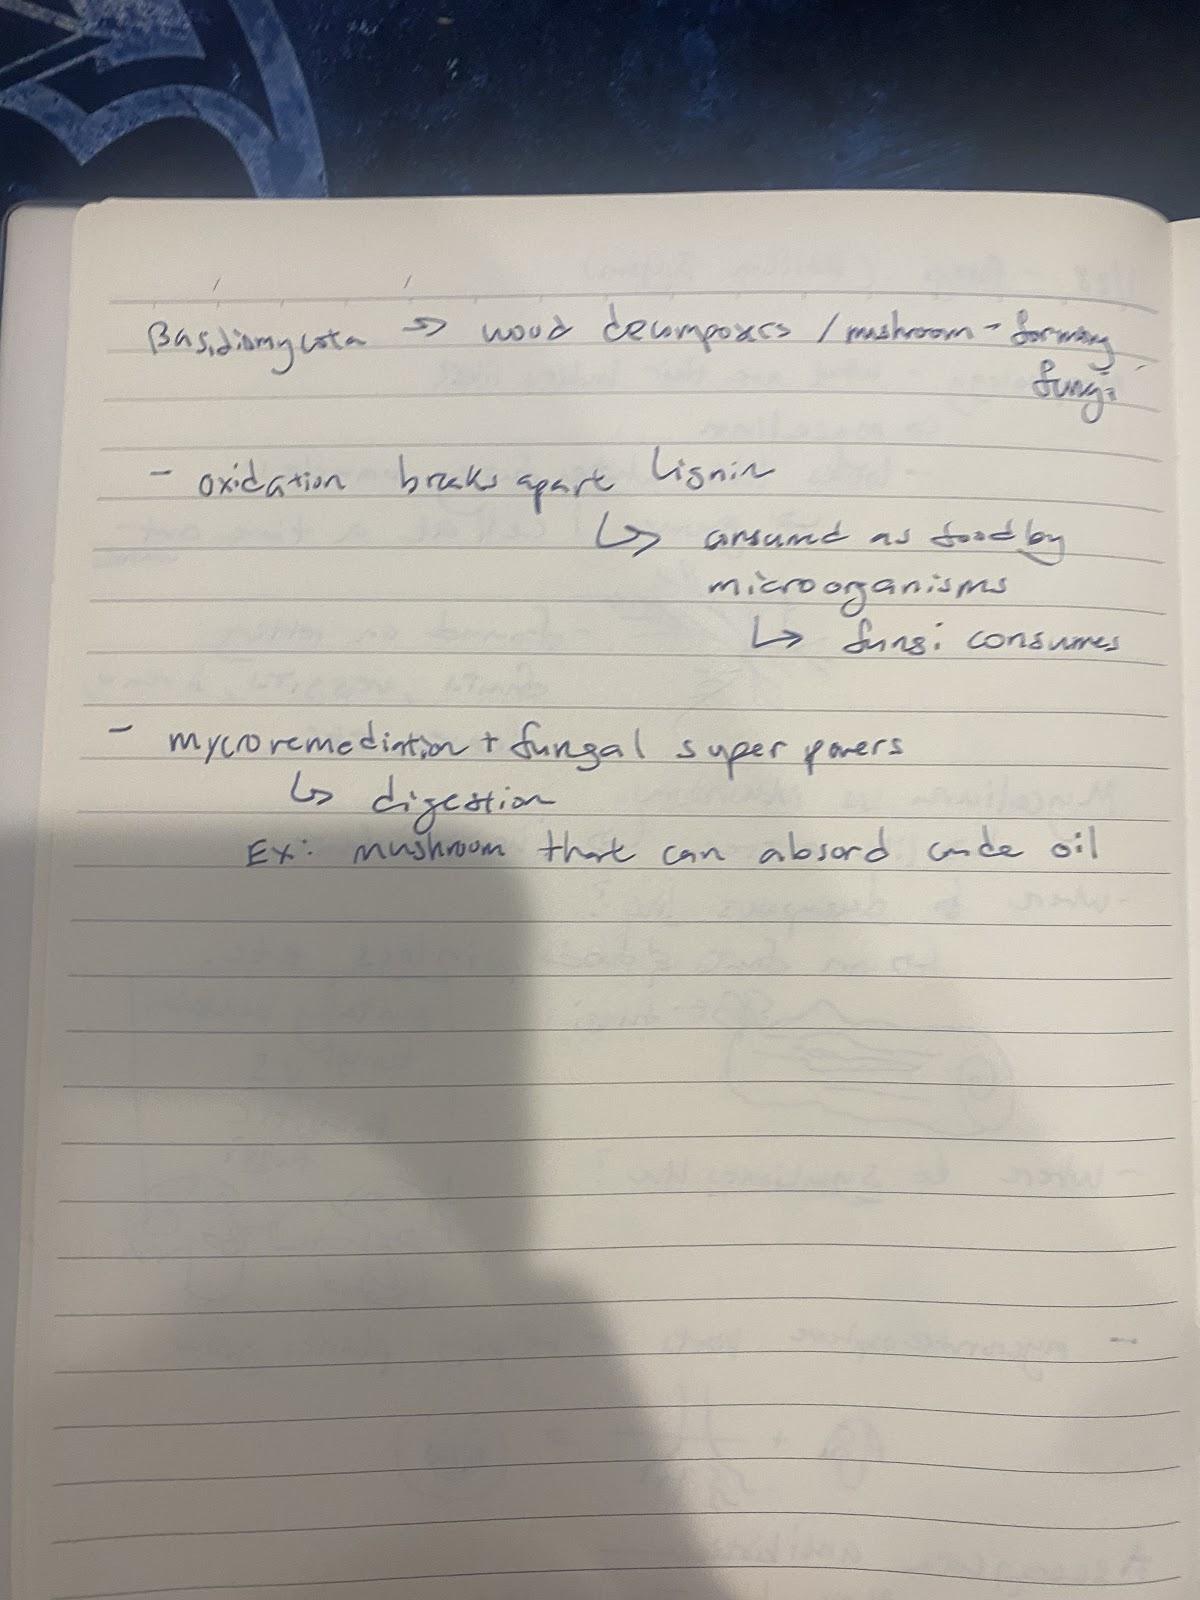 Basidiomycota → wood decomposers / mushroom-forming
fungi
- oxidation breaks apart lignin
↳ consumed as food by
microorganisms
↳ fungi consumes
- mycroremediation + fungal super powers
↳ digestion
Ex: mushroom that can absord crude oil